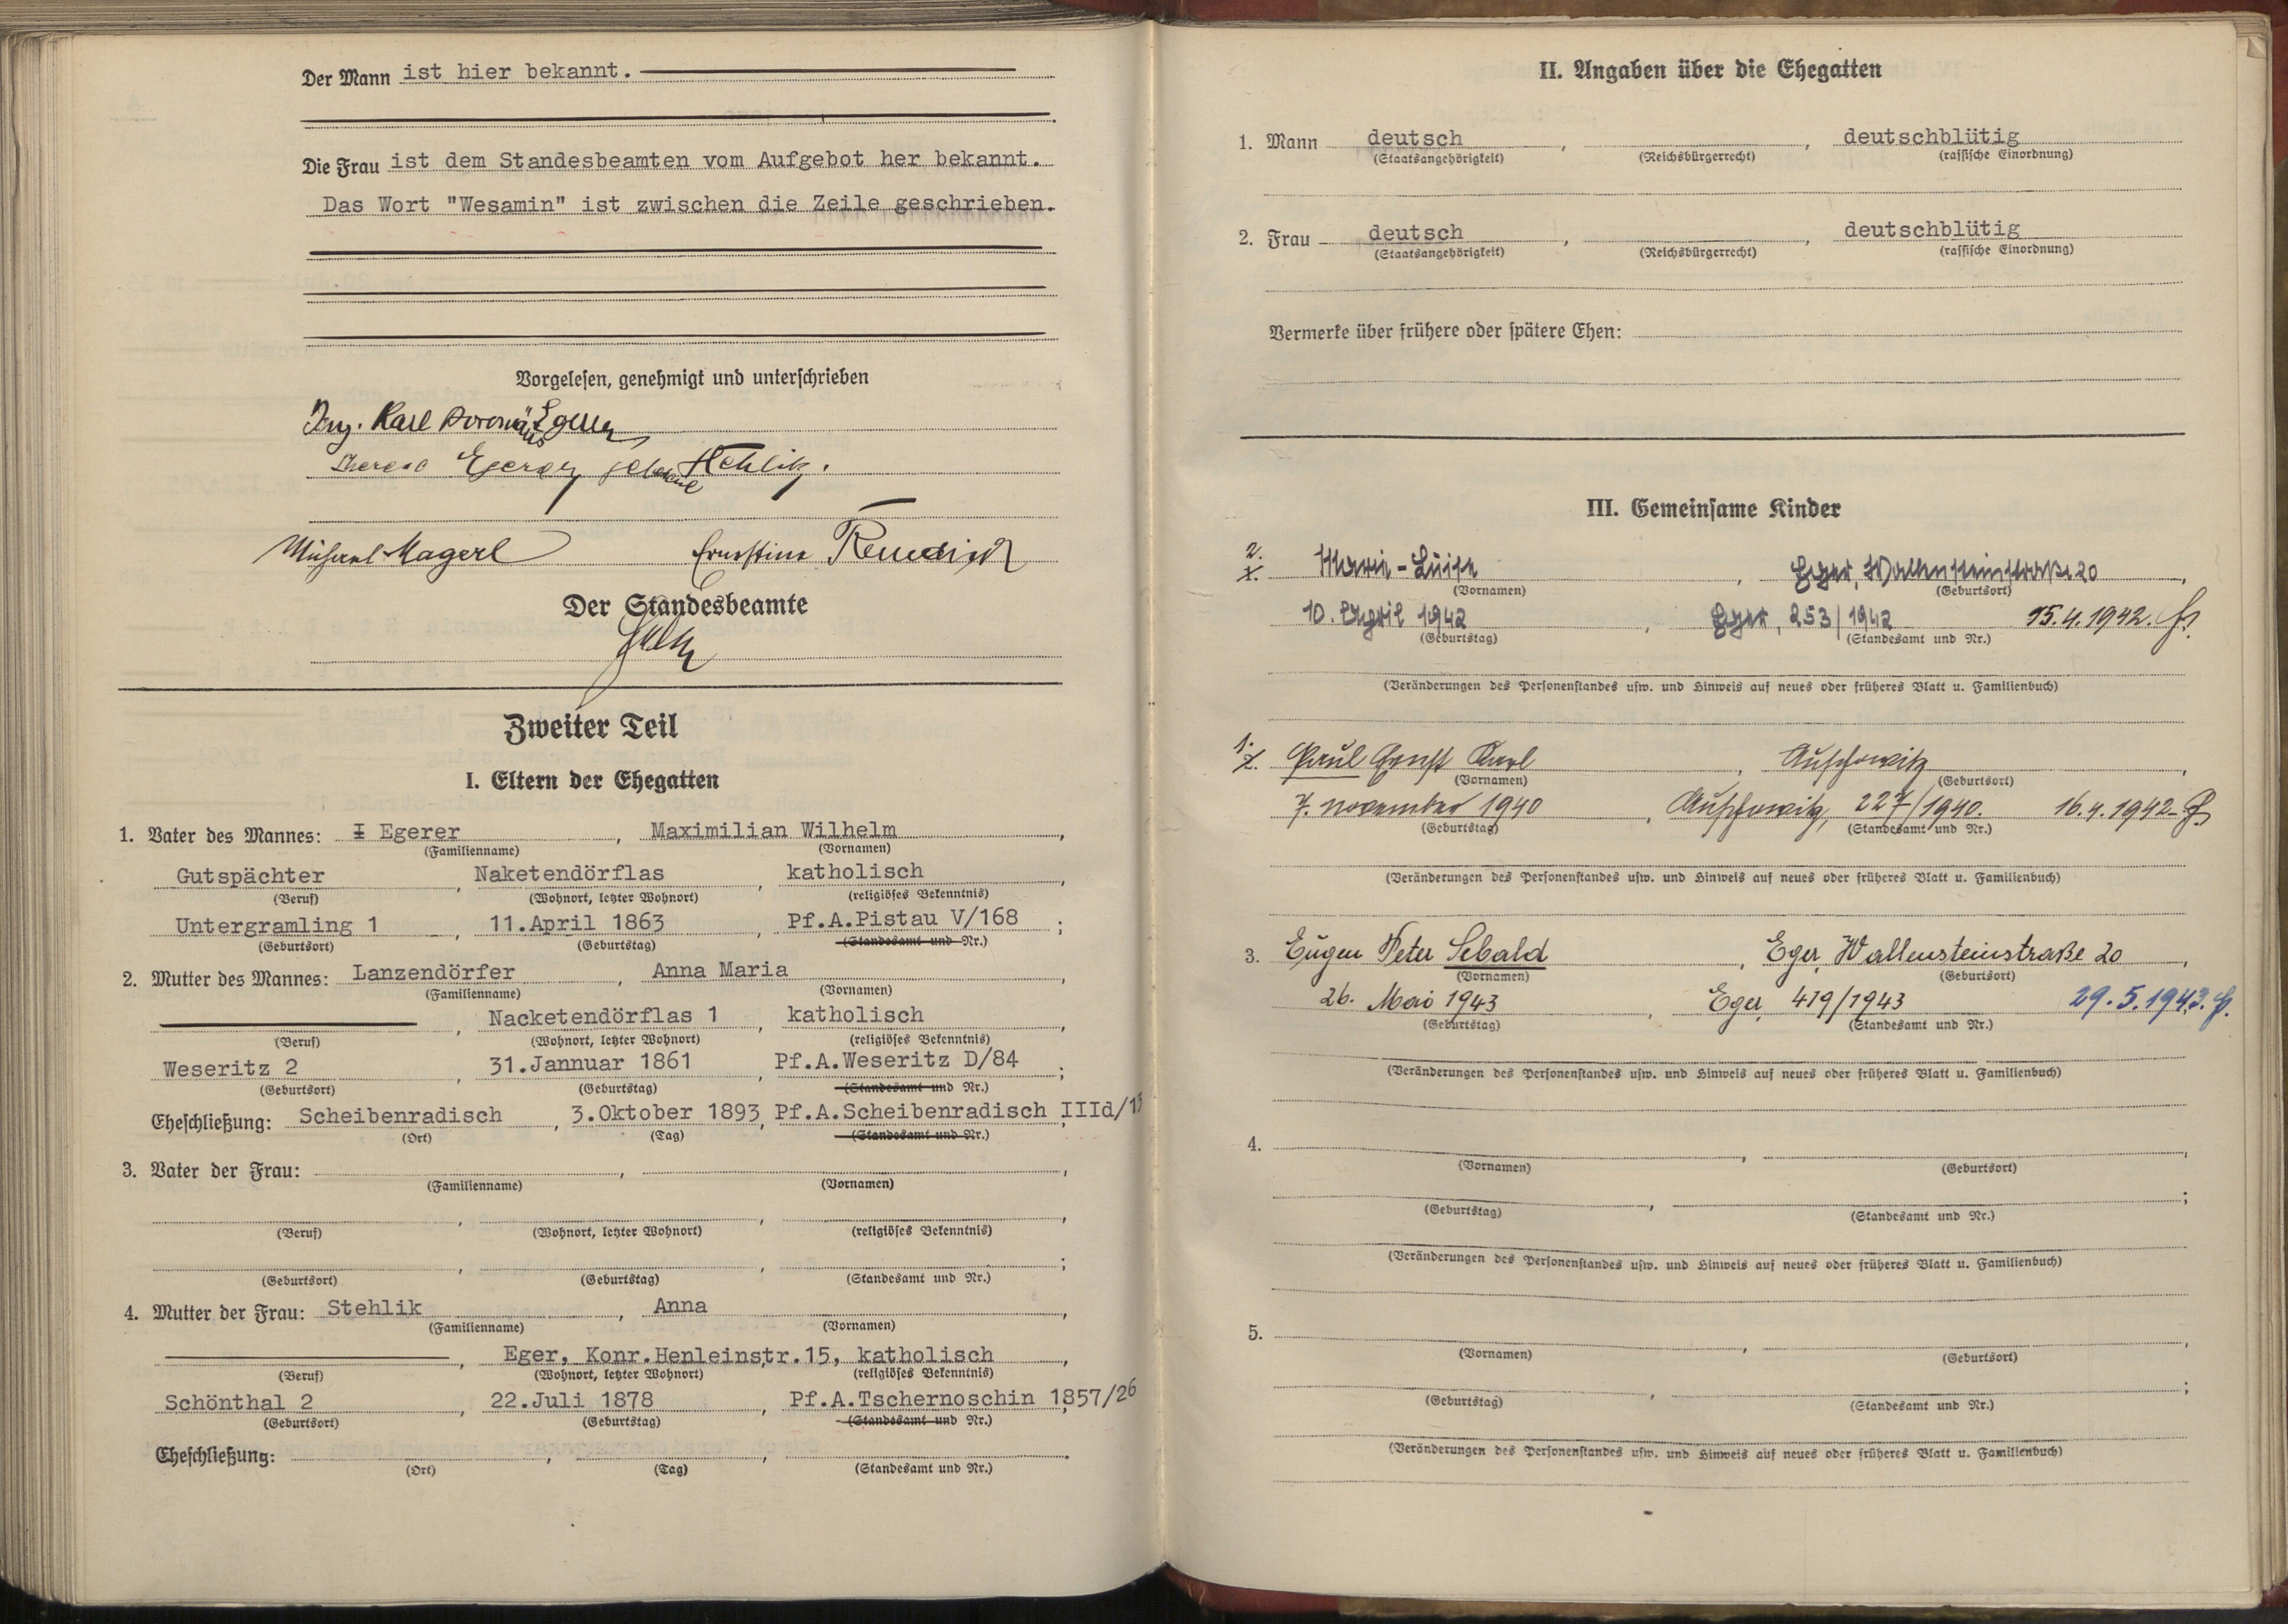 Der Mann ist hier bekannt.
Die Frau ist dem Standesbeamten vom Aufgebot her bekannt.
Das Wort "Wesamin" ist zwischen die Zeile geschrieben.
Vorgelesen, genehmigt und unterschrieben
Ing. Karl Egerer
Egerer geborene Stehlik.
Magerl Ernestine
Der Standesbeamte
Zweiter Teil
I. Eltern der Ehegatten
1. Vater des Mannes: I Egerer, Maximilian Wilhelm,
(Familienname) (Vornamen)
Gutspächter, Naketendörflas, katholisch,
(Beruf) (Wohnort, letzter Wohnort) (religiöses Bekenntnis)
Untergramling 1, 11.April 1863, Pf.A.Pistau V/168;
(Geburtsort) (Geburtstag) (Standesamt und Nr.)
2. Mutter des Mannes: Lanzendörfer, Anna Maria,
(Familienname) (Vornamen)
, Nacketendörflas 1, katholisch,
(Beruf) (Wohnort, letzter Wohnort) (religiöses Bekenntnis)
Weseritz 2, 31.Jannuar 1861, Pf.A.Weseritz D/84;
(Geburtsort) (Geburtstag) (Standesamt und Nr.)
Eheschließung: Scheibenradisch, 3.Oktober 1893, Pf.A.Scheibenradisch IIId/13
(Ort) (Tag) (Standesamt und Nr.)
3. Vater der Frau: , ,
(Familienname) (Vornamen)
, , ,
(Beruf) (Wohnort, letzter Wohnort) (religiöses Bekenntnis)
, , ;
(Geburtsort) (Geburtstag) (Standesamt und Nr.)
4. Mutter der Frau: Stehlik, Anna,
(Familienname) (Vornamen)
, Eger, Konr.Henleinstr.15, katholisch,
(Beruf) (Wohnort, letzter Wohnort) (religiöses Bekenntnis)
Schönthal 2, 22.Juli 1878, Pf.A.Tschernoschin 1857/26
(Geburtsort) (Geburtstag) (Standesamt und Nr.)
Eheschließung: , , .
(Ort) (Tag) (Standesamt und Nr.)
II. Angaben über die Ehegatten
1. Mann deutsch, , deutschblütig
(Staatsangehörigkeit) (Reichsbürgerrecht) (rassische Einordnung)
2. Frau deutsch, , deutschblütig
(Staatsangehörigkeit) (Reichsbürgerrecht) (rassische Einordnung)
Vermerke über frühere oder spätere Ehen:
III. Gemeinsame Kinder
2.
1. Marie-Luise, Eger, Wallensteinstraße 20,
(Vornamen) (Geburtsort)
10. April 1942, Eger, 253/1942 15.4.1942.
(Geburtstag) (Standesamt und Nr.)
(Veränderungen des Personenstandes usw. und Hinweis auf neues oder früheres Blatt u. Familienbuch)
1.
2. Paul Ernst Karl, Auschowitz,
(Vornamen) (Geburtsort)
7. November 1940, Auschowitz, 227/1940. 16.4.1942
(Geburtstag) (Standesamt und Nr.)
(Veränderungen des Personenstandes usw. und Hinweis auf neues oder früheres Blatt u. Familienbuch)
3. Eugen Peter Sebald, Eger, Wallensteinstraße 20,
(Vornamen) (Geburtsort)
26. Mai 1943, Eger, 419/1943 29.5.1943.
(Geburtstag) (Standesamt und Nr.)
(Veränderungen des Personenstandes usw. und Hinweis auf neues oder früheres Blatt u. Familienbuch)
4. , ,
(Vornamen) (Geburtsort)
, ;
(Geburtstag) (Standesamt und Nr.)
(Veränderungen des Personenstandes usw. und Hinweis auf neues oder früheres Blatt u. Familienbuch)
5. , ,
(Vornamen) (Geburtsort)
, ;
(Geburtstag) (Standesamt und Nr.)
(Veränderungen des Personenstandes usw. und Hinweis auf neues oder früheres Blatt u. Familienbuch)